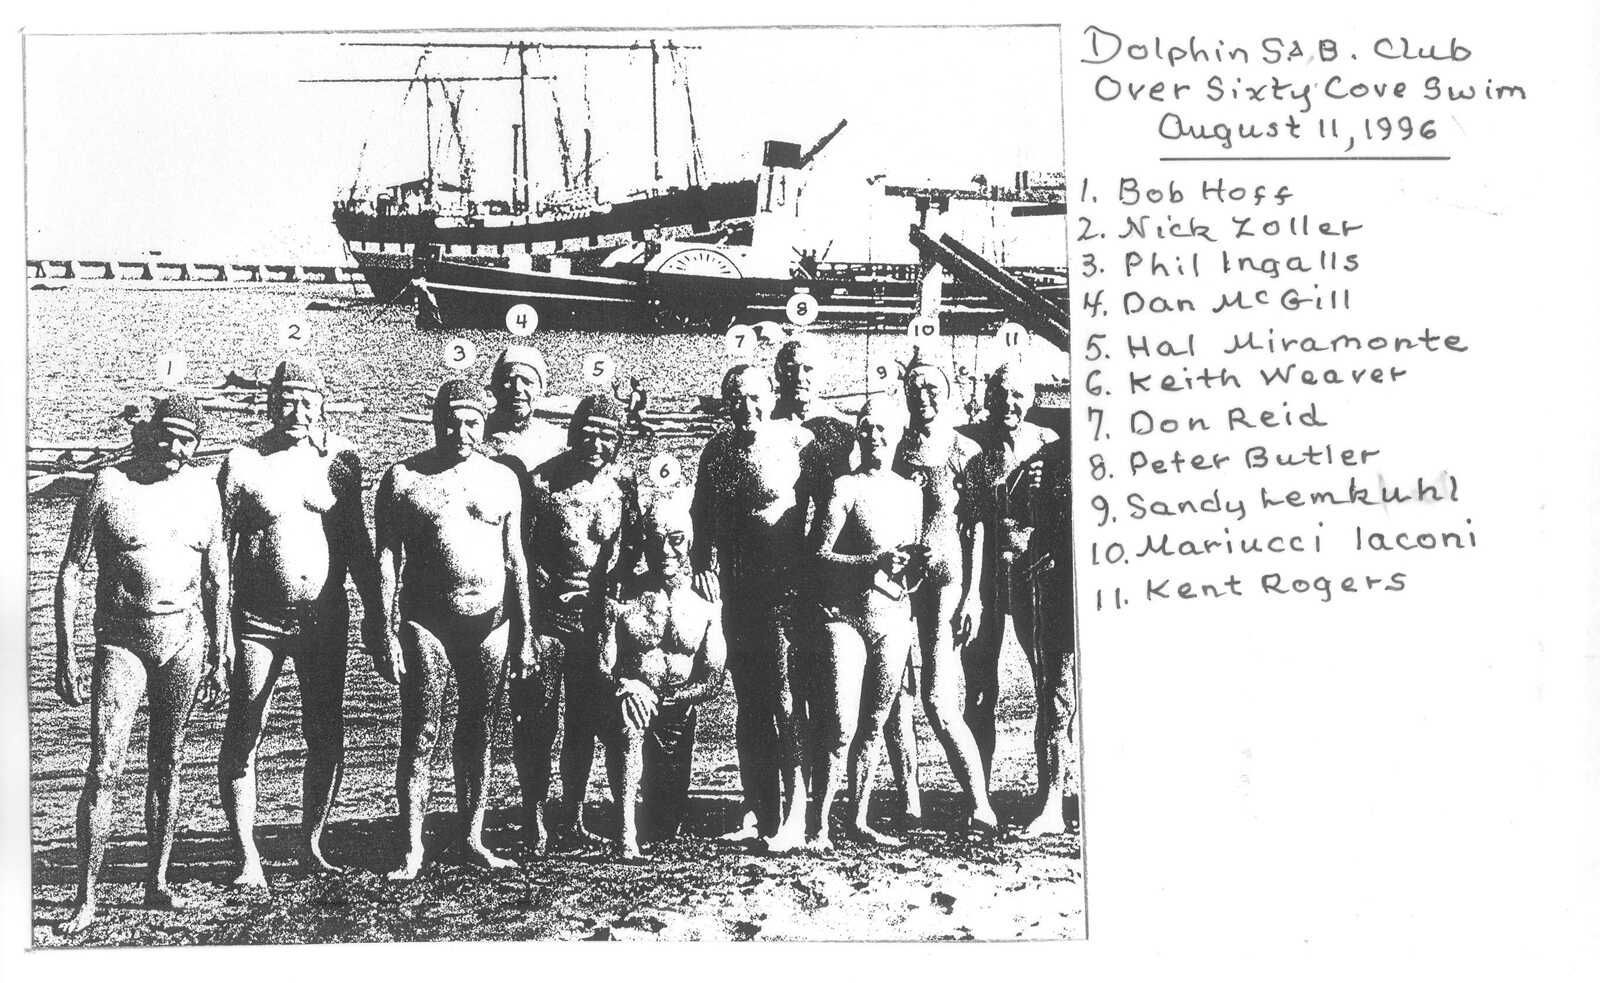 Dolphin S.&B. Club
Over Sixty Cove Swim
August 11, 1996
1. Bob Hoff
2. Nick Zoller
3. Phil Ingalls
4. Dan McGill
5. Hal Miramonte
6. Keith Weaver
7. Don Reid
8. Peter Butler
9. Sandy Lemkuhl
10. Mariucci Iaconi
11. Kent Rogers
1
2
3
4
5
6
7
8
9
10
11